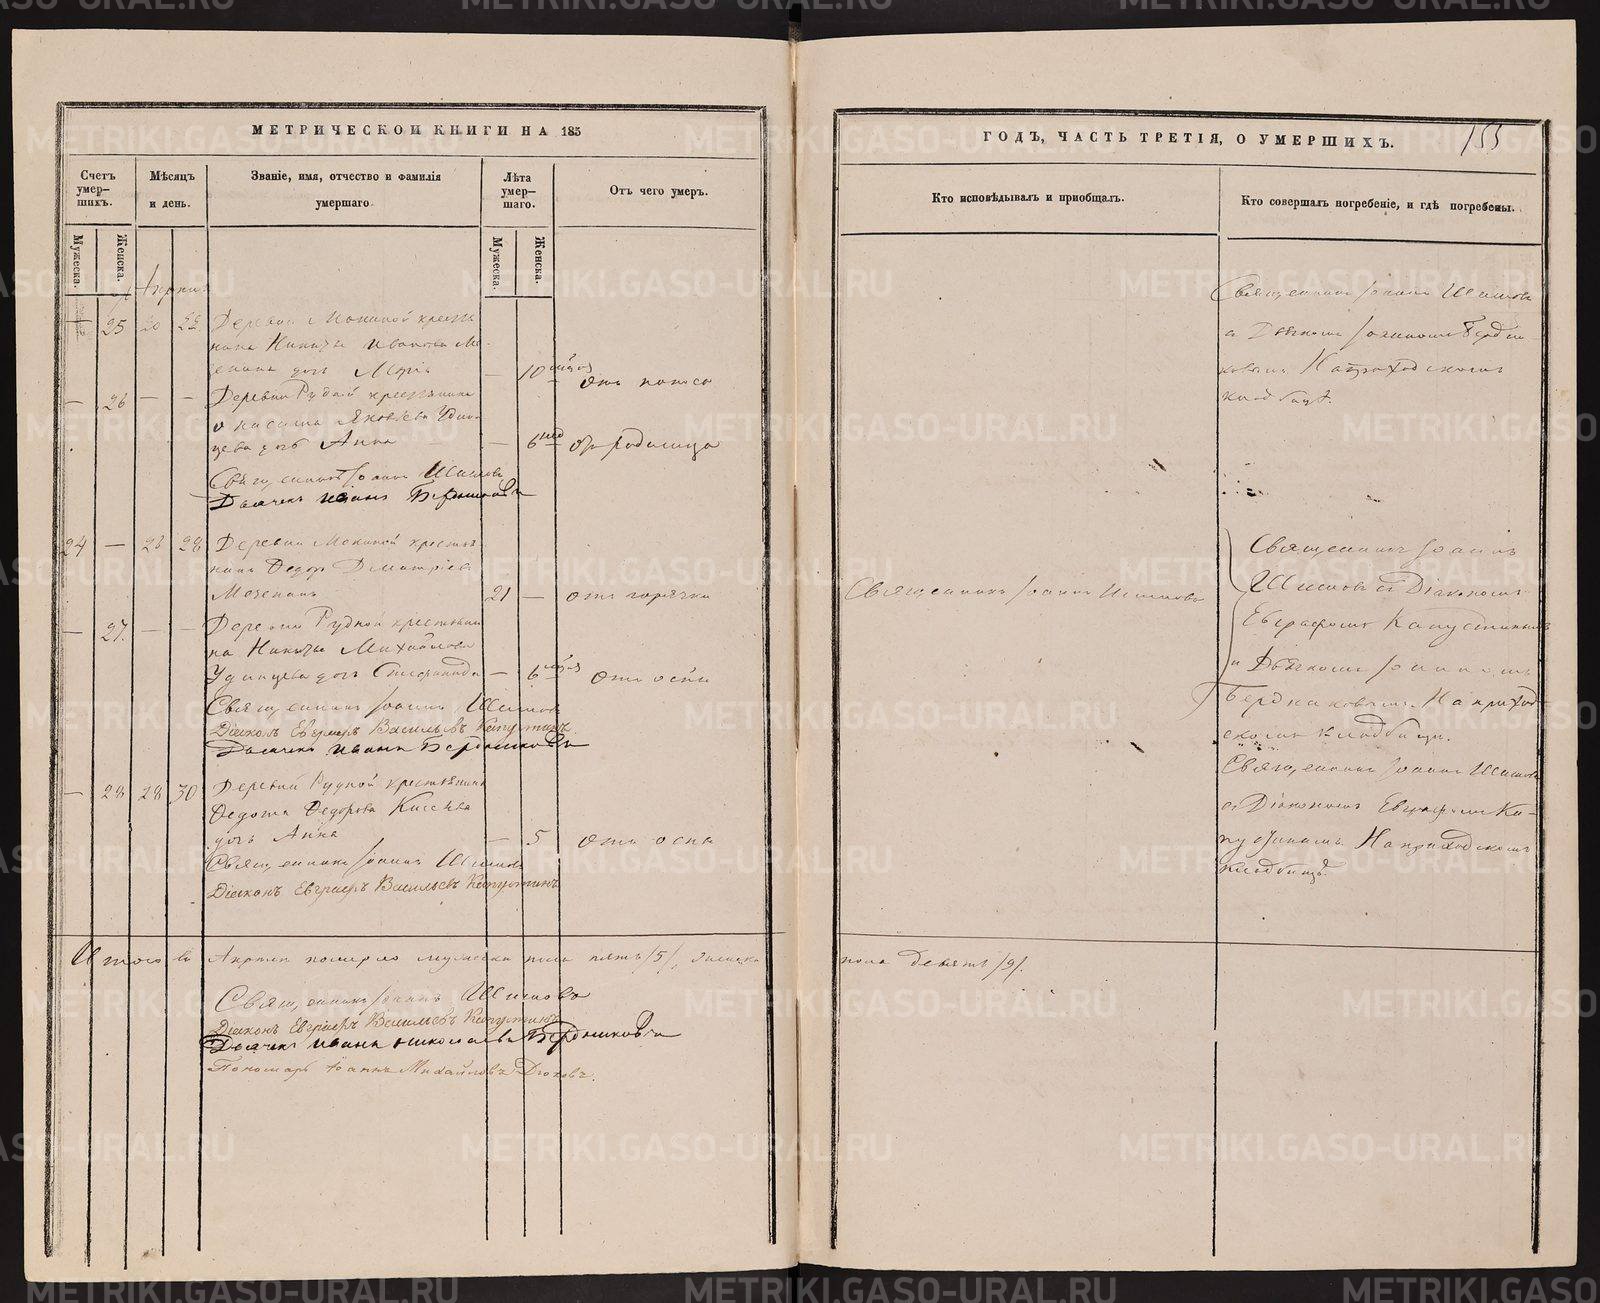 МЕТРИЧЕСКОЙ КНИГИ НА 185
Счетъ умер-
шихъ.
Мѣсяцъ
и день.
Званіе, имя, отчество и фамилія
умершаго
Лѣта
умер-
шаго.
Отъ чего умеръ.
Мужеска.
Женска.
Мужеска.
Женска.
25 20 22 Деревни крестья
нина Никиты Иванова
дочь Марія — 10 отъ поноса
— 26 — — Деревни Рудной крестьянина
Яковлева Удин
цева дочь Анна — 6 нед отъ родимца
Священникъ Іоаннъ Шишовъ
Дьячекъ Иванъ Бердниковъ
24 — 26 28 Деревни Мокиной крестья
нинъ Федоръ Димитріевъ
21 — отъ горячки
— 27. — — Деревни Рудной крестьяни
на Никиты Михайлова
Удинцева дочь Степанида — 6 отъ оспы
Священникъ Іоаннъ Шишовъ
Діаконъ Евграфъ Васильевъ Капустинъ
Дьячекъ Иванъ Бердниковъ
— 28 28 30 Деревни Рудной крестьянина
Федота Федорова
дочь Анна — 5 отъ оспы
Священникъ Іоаннъ Шишовъ
Діаконъ Евграфъ Васильевъ Капустинъ
Итого въ Апрѣлѣ померло мужеска пола пять /5/, женска
Священникъ Іоаннъ Шишовъ
Діаконъ Евграфъ Васильевъ Капустинъ
Дьячекъ Иванъ Николаевъ Бердниковъ
Пономарь Іоаннъ Михайловъ
ГОДЪ, ЧАСТЬ ТРЕТІЯ, О УМЕРШИХЪ.
155
Кто исповѣдывалъ и пріобщалъ.
Кто совершалъ погребеніе, и гдѣ погребены.
Священникъ Іоаннъ Шишовъ
съ Дьячкомъ Іоанномъ Бердни
ковымъ На приходскомъ
кладбищѣ.
Священникъ Іоаннъ
Священникъ Іоаннъ Шишовъ
Шишовъ съ Діакономъ
Евграфомъ Капустинымъ
и Дьячкомъ Іоанномъ
Бердниковымъ. На приход
скомъ кладбищѣ.
Священникъ Іоаннъ Шишовъ
съ Діакономъ Евграфомъ Ка-
пустинымъ. На приходскомъ
кладбищѣ.
пола девять /9/.
METRIKI.GASO-URAL.RU